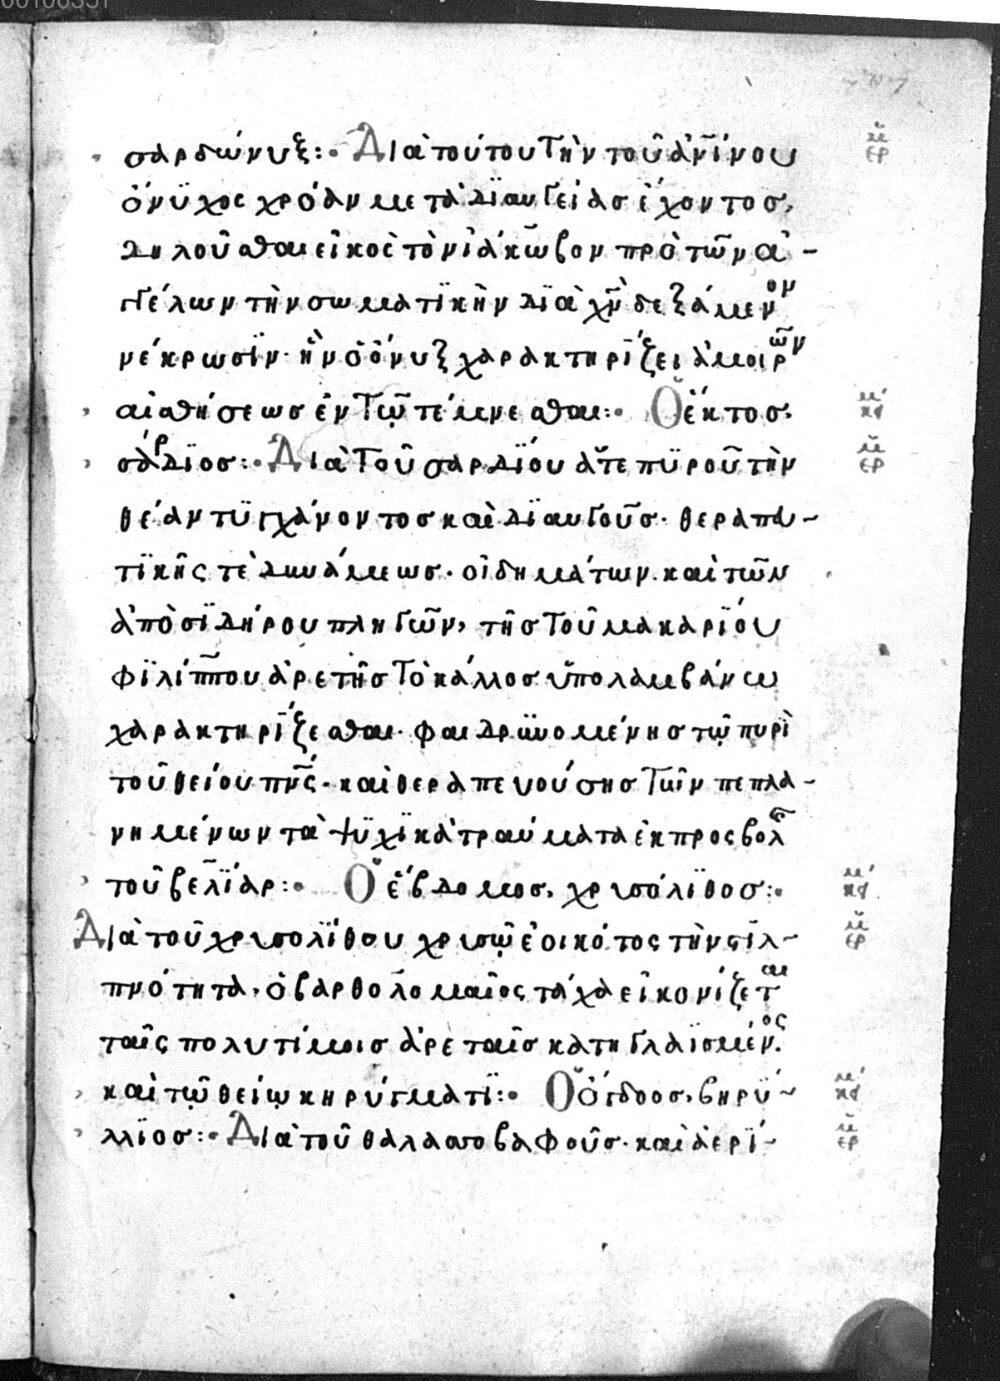 σαρδώνυξ:· Διὰ τούτου τὴν τοῦ ἀνΐνου
ὄνϋχος χρόαν μετὰ δϊαυγείας ἔχοντος,
δηλοῦσθαι εἰκὸς τὸν ἰάκωβον πρὸ τῶν ἀ-
γγέλων τὴν σωματϊκὴν δϊὰ χν δεξάμενον
νέκρωσϊν· ἣν ὁ ὄνυξ χαρακτηρίζει ἀμοιρῶν
αἰσθήσεως ἐν τῷ τέμνεσθαι:· Ὁ ἕκτος,
σάρδϊος:· Διὰ τοῦ σαρδΐου ἅτε πϋροῦ τὴν
θέαν τϋγχάνοντος καὶ δϊαυγοῦς· θεραπευ-
τϊκῆς τὲ δυνάμεως· οἰδημάτων· καὶ τῶν
ἀπὸ σϊδήρου πληγῶν, τῆς τοῦ μακαρΐου
φϊλίππου ἀρετῆς τὸ κάλλος ὑπολαμβάνω
χαρακτηρίζεσθαι· φαιδρϋνομένης τῷ πυρὶ
τοῦ θείου πνς· καὶ θεραπευούσης τῶν πεπλα-
νημένων τὰ ψϋχϊκὰ τραύματα ἐκ προσβολῆς
τοῦ βελΐαρ:· Ὁ ἕβδομος, χρυσόλϊθος:·
Διὰ τοῦ χρυσολΐθου χρυσῷ ἐοικότος τὴν στϊλ-
πνότητα, ὁ βαρθολομαῖος τάχα εἰκονίζεται
ταῖς πολυτίμοις ἀρεταῖς κατηγλαϊσμένος.
καὶ τῷ θείῳ κηρύγματϊ:· Ὁ ὄγδοος, βηρΰ-
λλϊος:· Διὰ τοῦ θαλασσοβαφοῦς· καὶ ἀερΐ-
κεί
ερ
κεί
κα
κεί
ερ
κεί
κα
κεί
ερ
κεί
κα
κεί
ερ